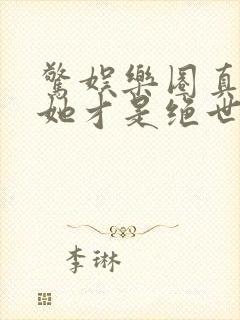 驚娱樂圈真
她才是绝世
李琳